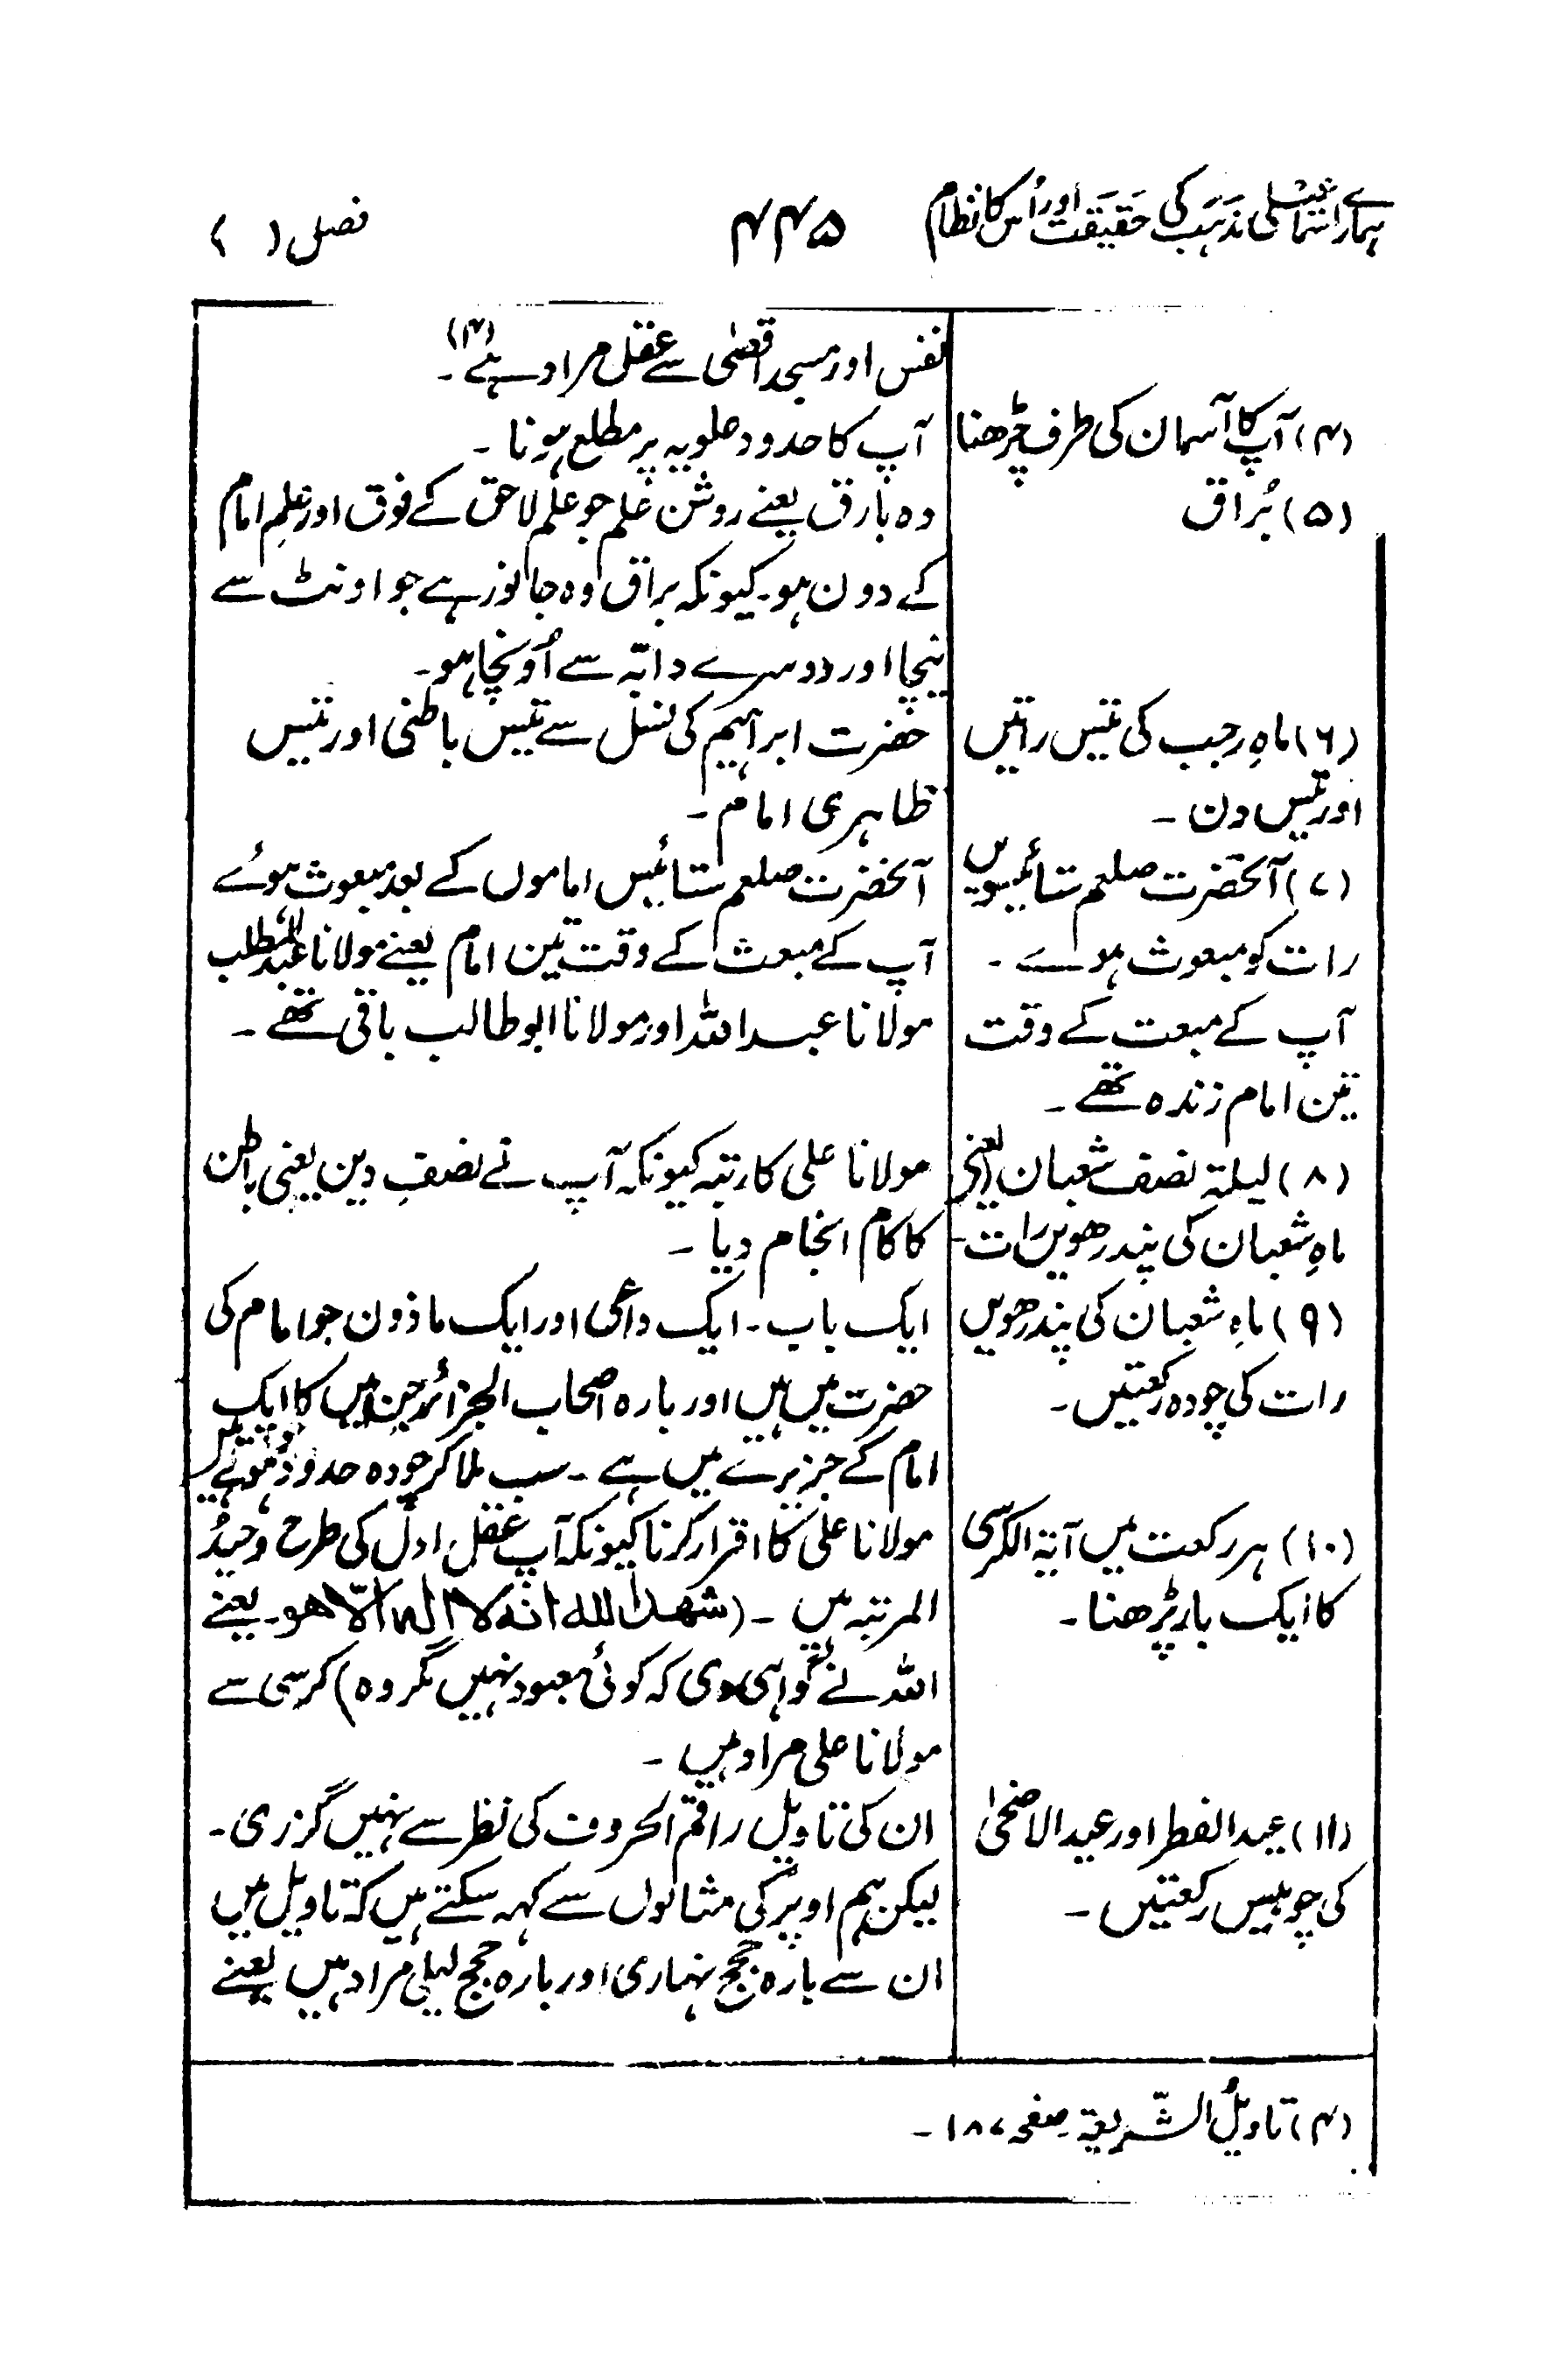 ہمارے اسماعیلی مذہب کی حقیقت اور اُس کا نظام
۴۴۵
فصل ( )
نفس اور مسجد اقصٰی سے عقل مراد ہے (۴)۔
(۴) آپ کا آسمان کی طرف چڑھنا
آپ کا حدود علویہ پر مطلع ہونا ۔
(۵) بُراق
وہ بارق یعنے روشن علم جو علم لاحق کے فوق اور علمِ امام
کے دون ہو۔ کیونکہ براق وہ جانور ہے جو اونٹ سے
نیچا اور دوسرے دابّہ سے اُونچا ہو۔
(۶) ماہِ رجب کی تیس راتیں
اور تیس دن ۔
حضرت ابراہیم کی نسل سے تیس باطنی اور تیس
ظاہری امام ۔
(۷) آنحضرت صلعم ستائیسویں
رات کو مبعوث ہوے ۔
آپ کے مبعت کے وقت
تین امام زندہ تھے ۔
آنحضرت صلعم ستائیس اماموں کے بعد مبعوث ہوئے
آپ کے مبعث کے وقت تین امام یعنے مولانا عبد المطلب
مولانا عبد اللہ اور مولانا ابو طالب باقی تھے ۔
(۸) لیلۃ نصف شعبان (یعنی
ماہِ شعبان کی پندرھویں رات ۔
مولانا علی کا رتبہ کیونکہ آپ نے نصفِ دین یعنی باطن
کا کام انجام دیا ۔
(۹) ماہِ شعبان کی پندرھویں
رات کی چودہ رکعتیں ۔
ایک باب ۔ ایک داعی اور ایک ماذون جو امام کی
حضرت میں ہیں اور بارہ اصحاب الجزائر جن میں کا ایک
امام کے جزیرے میں ہے ۔ سب ملا کر چودہ حدود ہوتے ہیں
(۱۰) ہر رکعت میں آیۃ الکرسی
کا ایک بار پڑھنا ۔
مولانا علی کا اقرار کرنا کیونکہ آپ عقل اول کی طرح وحیدُ
المرتبہ ہیں ۔ (شھد اللہ انہ لا الہ الّا ھو ۔ یعنے
اللہ نے گواہی دی کہ کوئی معبود نہیں مگر وہ) کرسی سے
مولانا علی مراد ہیں ۔
(۱۱) عید الفطر اور عید الاضحیٰ
کی چوبیس رکعتیں ۔
ان کی تاویل راقم الحروف کی نظر سے نہیں گزری ۔
لیکن ہم اوپر کی مثالوں سے کہہ سکتے ہیں کہ تاویل میں
ان سے بارہ حجج نہاری اور بارہ حجج لیلی مراد ہیں یعنے
(۴) تاویلُ الشّریعۃ صفحہ ۱۸۷ ۔